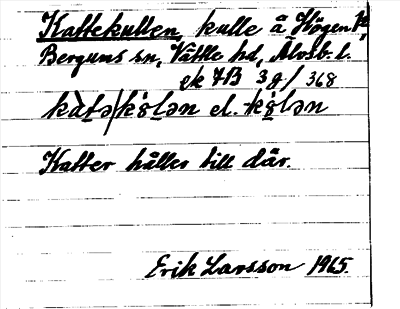 Kattekullen, kulle å Högen
Bergums sn, Vättle hd, Älvsb. l.
ek 7B 3g / 368
kàt̯ə|kò̤l̯ən el. -kò̤l̯ən
Katter håller till där.
Erik Larsson 1965.